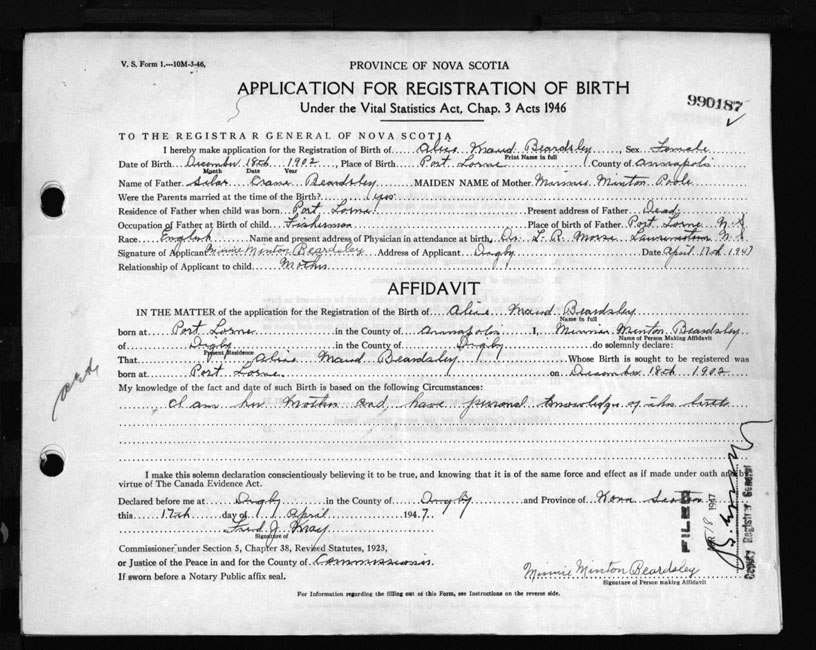 V. S. Form 1.—10M-3-46,
PROVINCE OF NOVA SCOTIA
APPLICATION FOR REGISTRATION OF BIRTH
Under the Vital Statistics Act, Chap. 3 Acts 1946
990187
TO THE REGISTRAR GENERAL OF NOVA SCOTIA
I hereby make application for the Registration of Birth of Alice Maud Beardsley, Sex Female
Print Name in full
Date of Birth December 18th 1902, Place of Birth Port Lorne County of Annapolis
Month Date Year
Name of Father Silas Crane Beardsley MAIDEN NAME of Mother Minnie Minton Poole
Were the Parents married at the time of the Birth? yes
Residence of Father when child was born Port Lorne Present address of Father Dead
Occupation of Father at Birth of child Fisherman Place of birth of Father Port Lorne N.S
Race English Name and present address of Physician in attendance at birth Dr. L. R. Morse Lawrencetown N.S
Signature of Applicant Minnie Minton Beardsley Address of Applicant Digby Date April 17th 1947
Relationship of Applicant to child Mother
AFFIDAVIT
IN THE MATTER of the application for the Registration of the Birth of Alice Maud Beardsley
Name in full
born at Port Lorne in the County of Annapolis I, Minnie Minton Beardsley
Name of Person Making Affidavit
of Digby in the County of Digby do solemnly declare:
Present Residence
That Alice Maud Beardsley Whose Birth is sought to be registered was
born at Port Lorne on December 18th 1902
My knowledge of the fact and date of such Birth is based on the following Circumstances:
I am her Mother and have personal knowledge of this birth
I make this solemn declaration conscientiously believing it to be true, and knowing that it is of the same force and effect as if made under oath and by
virtue of The Canada Evidence Act.
Declared before me at Digby in the County of Digby and Province of Nova Scotia
this 17th day of April 1947.
Signature of
Commissioner under Section 5, Chapter 38, Revised Statutes, 1923,
or Justice of the Peace in and for the County of
If sworn before a Notary Public affix seal.
FILED
18 1947
Deputy Registrar General
Minnie Minton Beardsley
Signature of Person making Affidavit
For Information regarding the filling out of this Form, see Instructions on the reverse side.